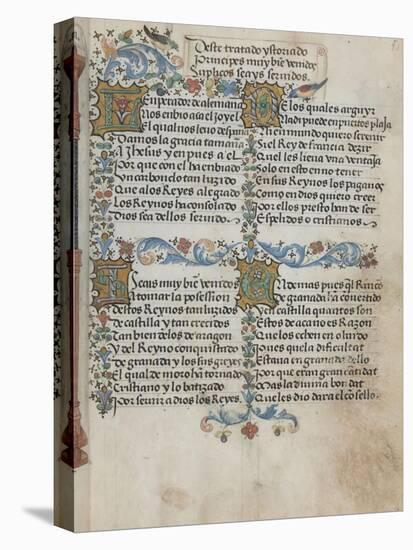 Deste tratado ystoriado
Principes muy bie venidos
Suplicos seays seruidos.
El enperador de alemana
Nos enbio aca el Joyel
El qual nos leuo de spana
Damos la gracia tamaña
A Jhesus y en pues a el
Por que con el ha enbiado
Un carbonclo tan luzido
Que alos Reyes alegrado
Los Reynos ha consolado
Dios sea dello seruido
De los quales arguyr
Nadi puede en puertos plaja
Nen mundo quiero seruir
Quiel Rey de francia dezir
Que les lieua una ventaja
Solo en esto en no tener
En sus Reynos los paganos
Como en dios quiero creer
Por ellos presto han de ser
Espelidos o cristianos
Seays muy bie venidos
Tomar la possesion
Destos Reynos tan luzidos
de castilla y tan crecidos
Tan bien delos de aragon
Y del Reyno conquistado
de granada y los sus greyes
El qual de moro ha tornado
Cristiano y lo batizado
Por seruir a dios los Reyes
Aldemas pues ql Rincon
de granada ha conuertido
En castilla quantos son
Estos de acano es Razon
Que los echen en oluido
Pues quela dificultat
Estaua en granada dello
Por que eran gran cantidat
Mas la diuina bondat
Que les dio dara el cosello